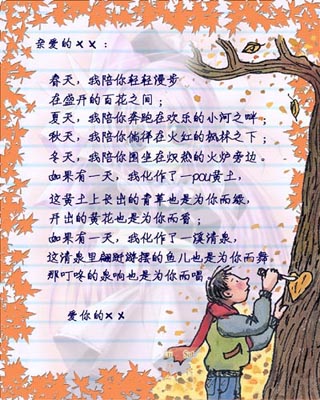 亲爱的××：
春天，我陪你轻轻漫步
在盛开的百花之间；
夏天，我陪你奔跑在欢乐的小河之畔；
秋天，我陪你徜徉在火红的枫林之下；
冬天，我陪你围坐在炽热的火炉旁边。
如果有一天，我化作了一pou黄土，
这黄土上长出的青草也是为你而绿，
开出的黄花也是为你而香；
如果有一天，我化作了一溪清泉，
这清泉里翩跹游摆的鱼儿也是为你而舞
那叮咚的泉响也是为你而唱
爱你的××